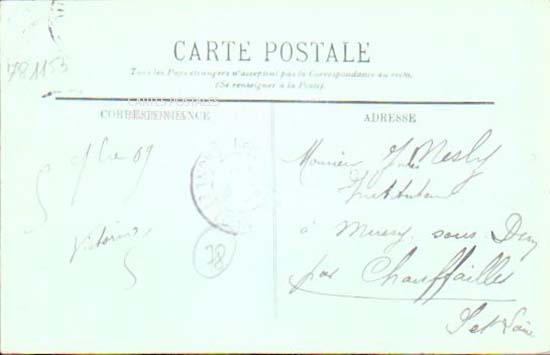 781153
CARTE POSTALE
Tous les Pays étrangers n'acceptent pas la Correspondance au recto,
(Se renseigner à la Poste).
CARTES POSTALES
CORRESPONDANCE
ADRESSE
09
Victorine
78
Monsieur Jules Mesly
Instituteur
à sous Dun
par Chauffailles
S et Loire